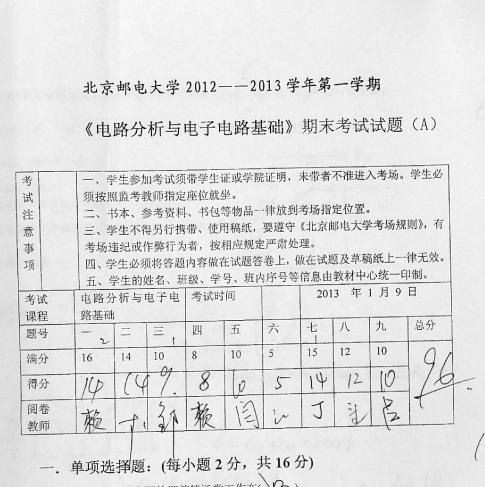 北京邮电大学2012——2013学年第一学期
《电路分析与电子电路基础》期末考试试题（A）
考试注意事项
一、学生参加考试须带学生证或学院证明，未带者不准进入考场。学生必
须按照监考教师指定座位就坐。
二、书本、参考资料、书包等物品一律放到考场指定位置。
三、学生不得另行携带、使用稿纸，要遵守《北京邮电大学考场规则》，有
考场违纪或作弊行为者，按相应规定严肃处理。
四、学生必须将答题内容做在试题答卷上，做在试题及草稿纸上一律无效。
五、学生的姓名、班级、学号、班内序号等信息由教材中心统一印制。
考试课程 电路分析与电子电路基础 考试时间 2013 年 1 月 9 日
题号 一 二 三 四 五 六 七 八 九 总分
2 1 1
满分 16 14 10 8 10 5 15 12 10
得分 14 14 9 8 10 5 14 12 10 96
阅卷教师 赖 邹 赖 闫 丁 吕
一．单项选择题：(每小题 2 分，共 16 分)